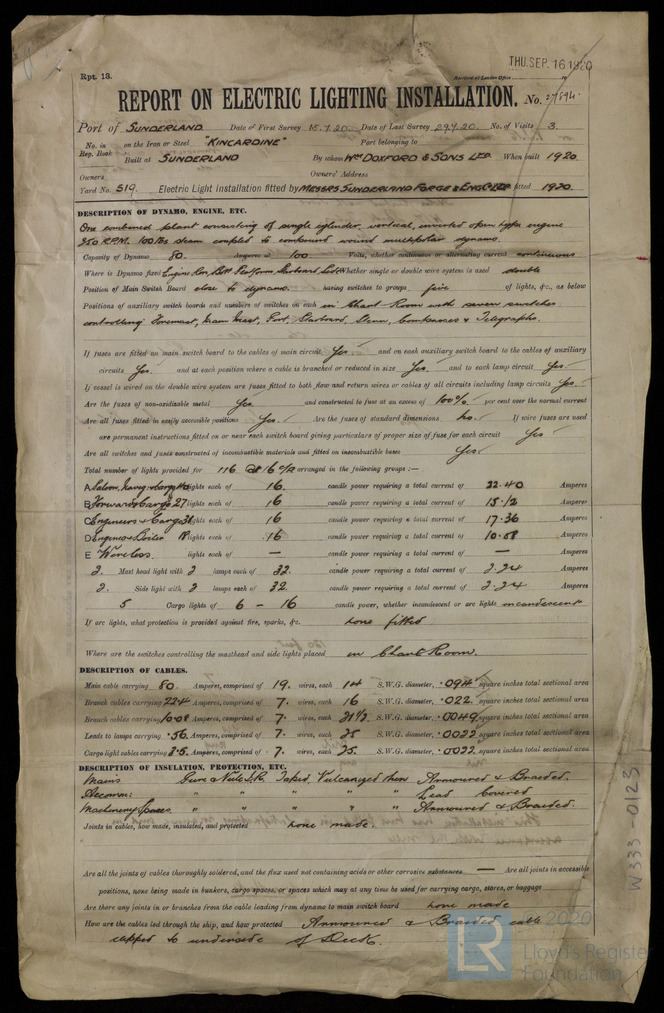 THU. SEP. 16 1920
Rpt. 13.
Received at London Office
REPORT ON ELECTRIC LIGHTING INSTALLATION. No. 27894
Port of SUNDERLAND Date of First Survey 15.7.20 Date of Last Survey 29.7.20 No. of Visits 3.
No. in Reg. Book on the Iron or Steel "KINCARDINE" Port belonging to
Built at SUNDERLAND By whom Wm DOXFORD & SONS LTD. When built 1920
Owners Owners' Address
Yard No. 519. Electric Light Installation fitted by MESSRS SUNDERLAND FORGE & ENG. Co LTD fitted 1920
DESCRIPTION OF DYNAMO, ENGINE, ETC.
One combined plant consisting of single cylinder, vertical, inverted open type engine
350 R.P.M. 100 lbs steam coupled to compound wound multipolar dynamo.
Capacity of Dynamo 80. Amperes at 100 Volts, whether continuous or alternating current continuous
Where is Dynamo fixed Engine Rm, Bott Platform Starboard Side Whether single or double wire system is used double
Position of Main Switch Board close to dynamo. having switches to groups five of lights, &c., as below
Positions of auxiliary switch boards and numbers of switches on each in Chart Room with seven switches
controlling Foremast, Main Mast, Port, Starboard, Stern, Compasses & Telegraphs.
If fuses are fitted on main switch board to the cables of main circuit Yes and on each auxiliary switch board to the cables of auxiliary
circuits Yes. and at each position where a cable is branched or reduced in size Yes and to each lamp circuit Yes
If vessel is wired on the double wire system are fuses fitted to both flow and return wires or cables of all circuits including lamp circuits Yes.
Are the fuses of non-oxidizable metal Yes. and constructed to fuse at an excess of 100% per cent over the normal current
Are all fuses fitted in easily accessible positions Yes. Are the fuses of standard dimensions No. If wire fuses are used
are permanent instructions fitted on or near each switch board giving particulars of proper size of fuse for each circuit Yes
Are all switches and fuses constructed of incombustible materials and fitted on incombustible bases Yes.
Total number of lights provided for 116 @ 16 c/p arranged in the following groups :—
A Saloon, Navig. & Cargo 40 lights each of 16. candle power requiring a total current of 22.40 Amperes
B Forward & Cargo 27 lights each of 16 candle power requiring a total current of 15.12 Amperes
C Engineers & Cargo 31 lights each of 16 candle power requiring a total current of 17.36 Amperes
D Engine & Boiler 18 lights each of 16 candle power requiring a total current of 10.08 Amperes
E Wireless. lights each of — candle power requiring a total current of — Amperes
2. Mast head light with 2 lamps each of 32. candle power requiring a total current of 2.24 Amperes
2. Side light with 2 lamps each of 32. candle power requiring a total current of 2.24 Amperes
5 Cargo lights of 6 – 16 candle power, whether incandescent or arc lights incandescent
If arc lights, what protection is provided against fire, sparks, &c. none fitted
Where are the switches controlling the masthead and side lights placed in Chart Room.
DESCRIPTION OF CABLES.
Main cable carrying 80. Amperes, comprised of 19. wires, each 14 S.W.G. diameter, .094 square inches total sectional area
Branch cables carrying 22.4 Amperes, comprised of 7. wires, each 16 S.W.G. diameter, .022. square inches total sectional area
Branch cables carrying 10.08 Amperes, comprised of 7. wires, each 21½ S.W.G. diameter, .0049 square inches total sectional area
Leads to lamps carrying .56. Amperes, comprised of 7. wires, each 25 S.W.G. diameter, .0022 square inches total sectional area
Cargo light cables carrying 3.5. Amperes, comprised of 7. wires, each 25. S.W.G. diameter, .0022. square inches total sectional area
DESCRIPTION OF INSULATION, PROTECTION, ETC.
Mains Pure & Vulc. I.R. Taped, Vulcanized then Armoured & Braided.
Accomm: " " " " " Lead Covered
Machinery Spaces. " " " " " Armoured & Braided.
Joints in cables, how made, insulated, and protected none made.
Are all the joints of cables thoroughly soldered, and the flux used not containing acids or other corrosive substances — Are all joints in accessible
positions, none being made in bunkers, cargo spaces, or spaces which may at any time be used for carrying cargo, stores, or baggage
Are there any joints in or branches from the cable leading from dynamo to main switch board none made
How are the cables led through the ship, and how protected Armoured & Braided cable
clipped to underside of Deck.
W333-0123
© 2020
LR
Lloyd's Register
Foundation